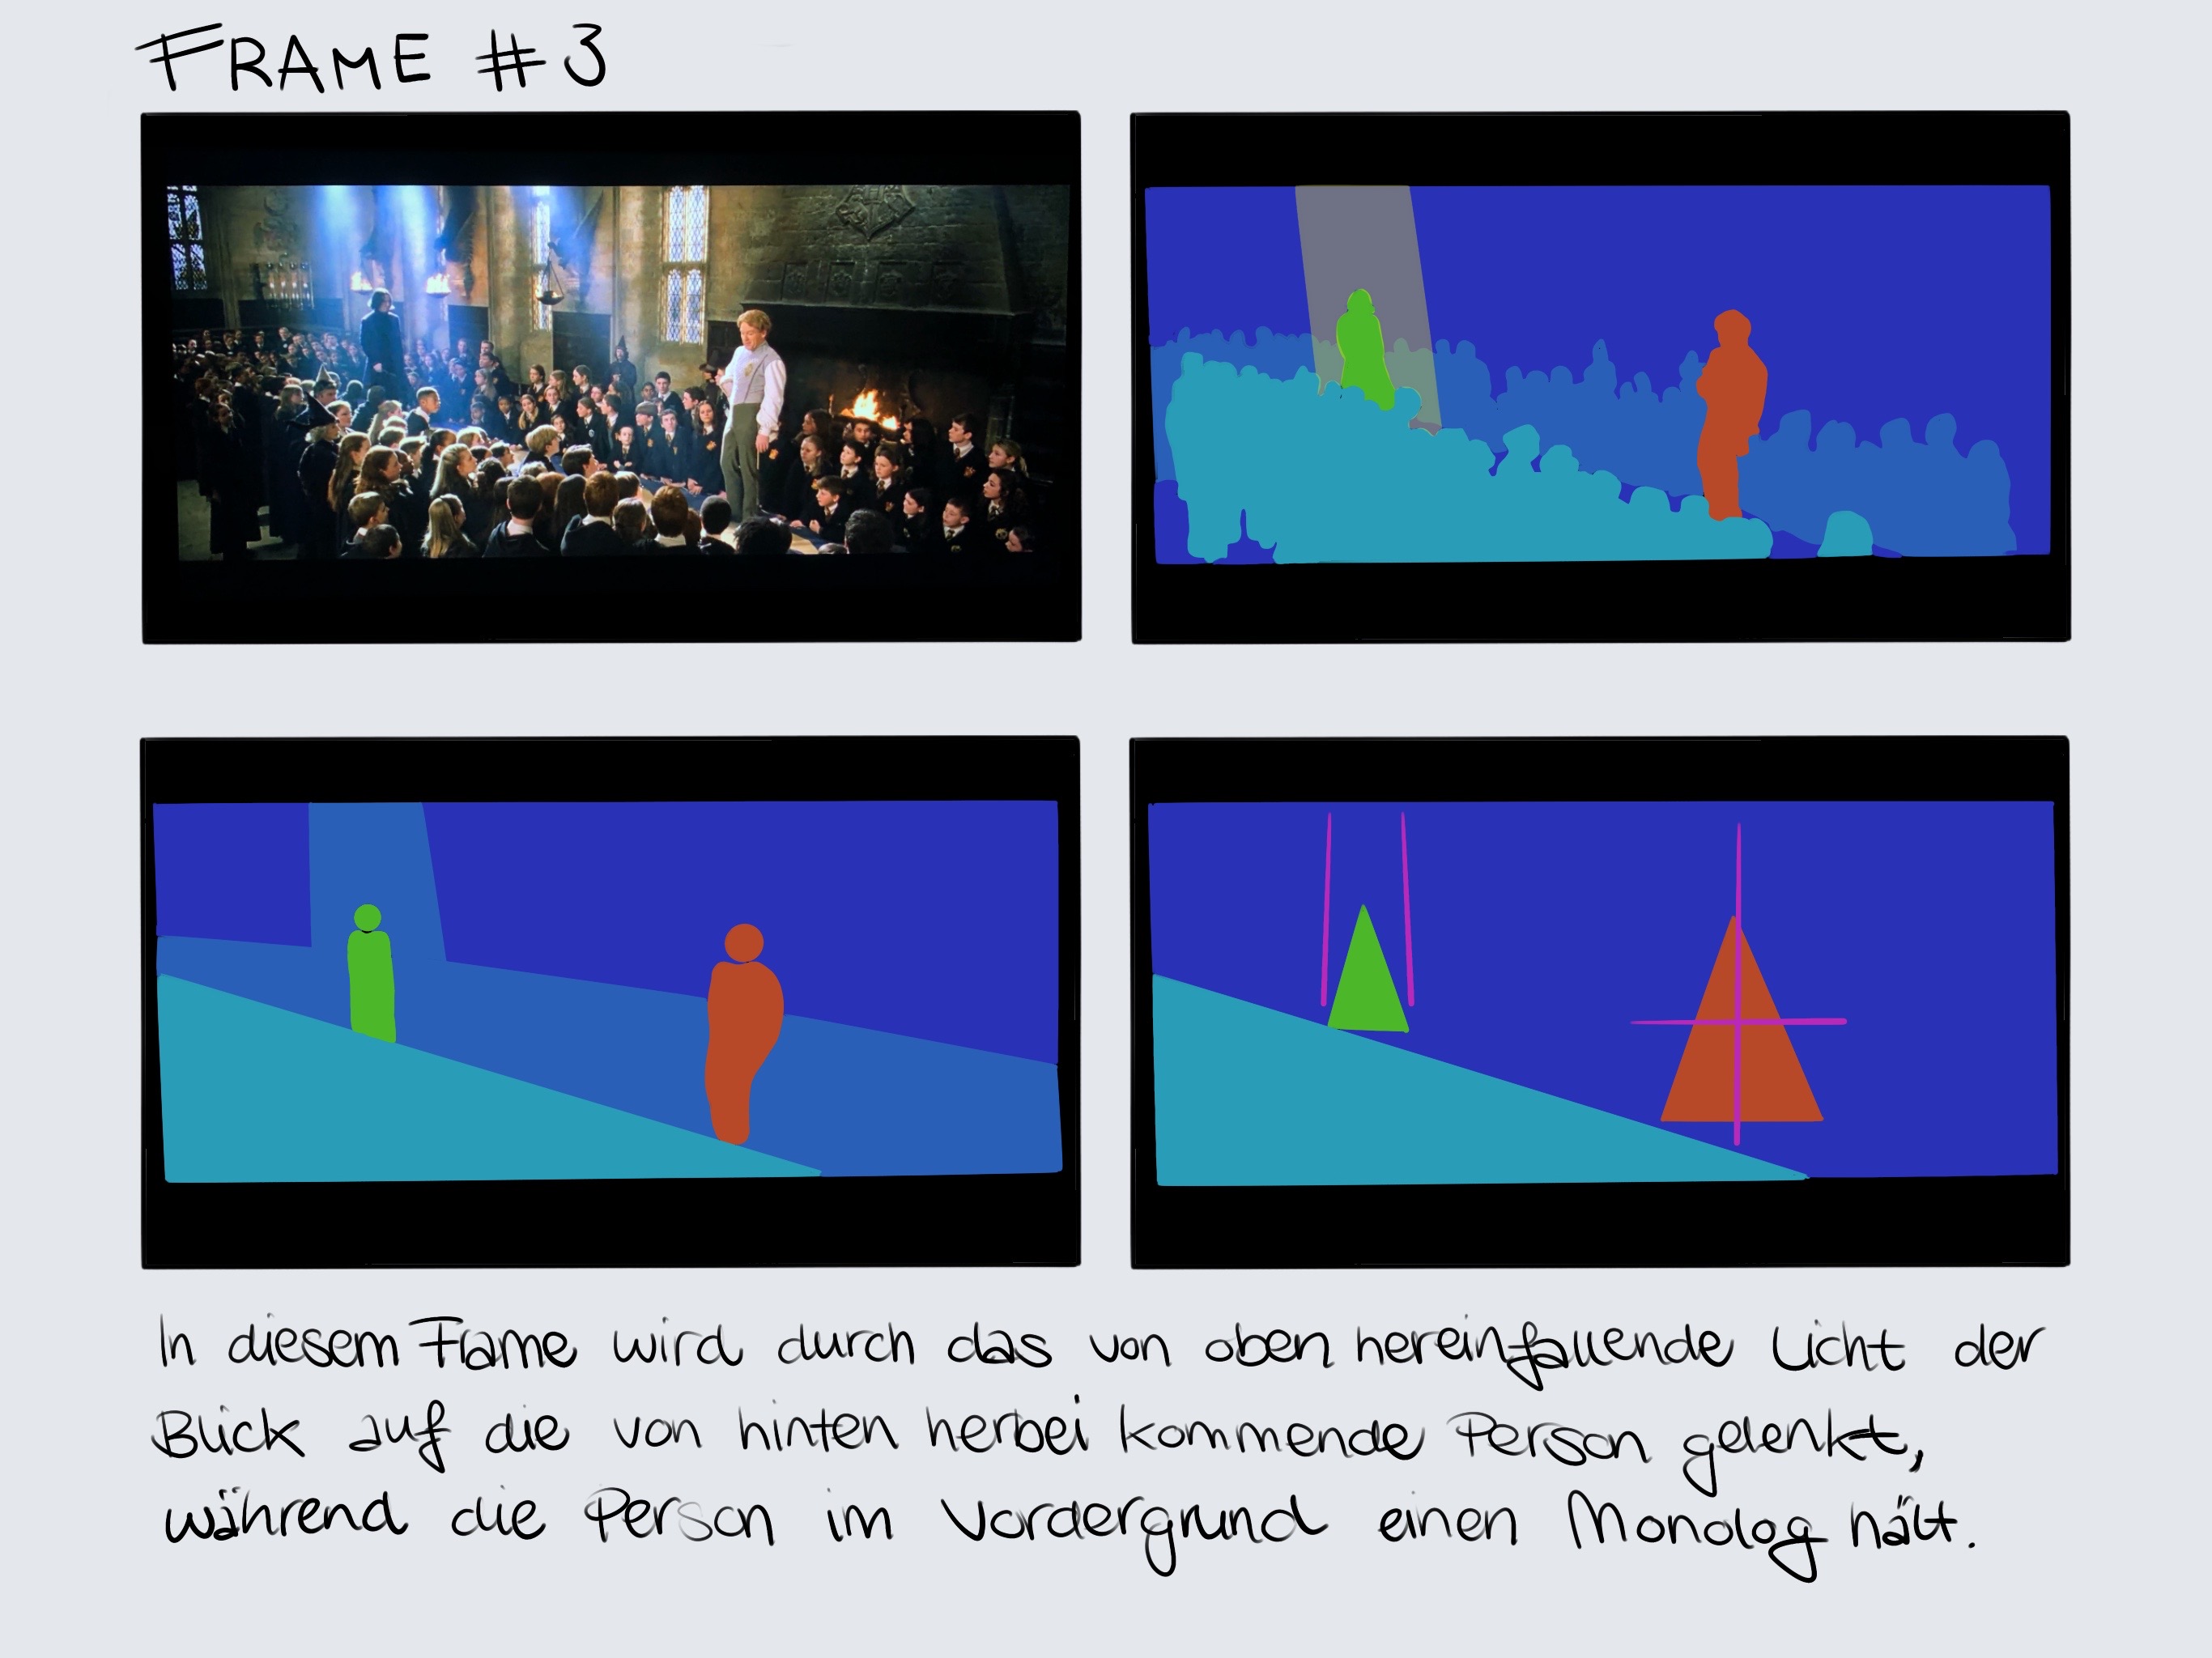 FRAME #3
In diesem Frame wird durch das von oben hereinfallende Licht der
Blick auf die von hinten herbei kommende Person gelenkt,
während die Person im Vordergrund einen Monolog hält.